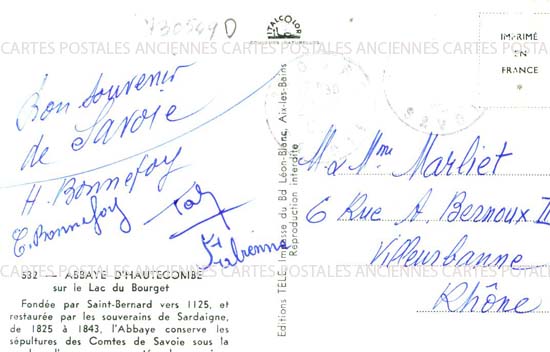 730564 D
ITALCOLOR
CARTES POSTALES ANCIENNES CARTES POSTALES ANCIENNES CARTES POSTALES
IMPRIMÉ
EN
FRANCE
Bon souvenir
de Savoie
H. Bonnefoy
C. Bonnefoy
Fabienne
532 - ABBAYE D'HAUTECOMBE
sur le Lac du Bourget
Fondée par Saint-Bernard vers 1125, et
restaurée par les souverains de Sardaigne,
de 1825 à 1843, l'Abbaye conserve les
sépultures des Comtes de Savoie sous la
Editions TELE, Impasse du Bd Léon-Blanc, Aix-les-Bains
Reproduction interdite
M. & Mme Marliet
6 Rue A. Bernoux II
Villeurbanne
Rhône